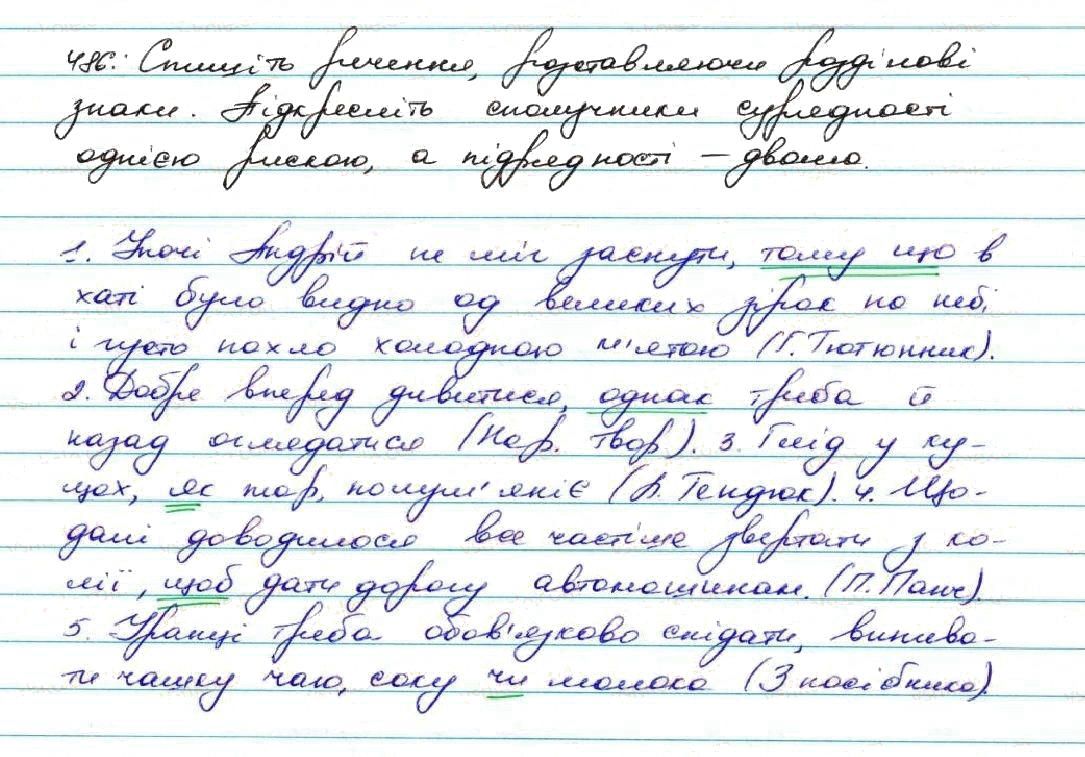 486. Спишіть речення, розставляючи розділові
знаки. Підкресліть сполучники сурядності
однією рискою, а підрядності – двома.
1. Уночі Андрій не міг заснути, тому що в
хаті було видно од великих зірок на небі
і густо пахло холодною м'ятою (Г. Тютюнник).
2. Добре вперед дивитися, однак треба й
назад оглядатися (Нар. твор.). 3. Глід у ку-
щах, як жар, полум'яніє (Л. Тендюк). 4. Що-
далі доводилося все частіше звертати з ко-
лії, щоб дати дорогу автомашинам. (П. Панч).
5. Уранці треба обов'язково снідати, випива-
ти чашку чаю, соку чи молока (З посібника).